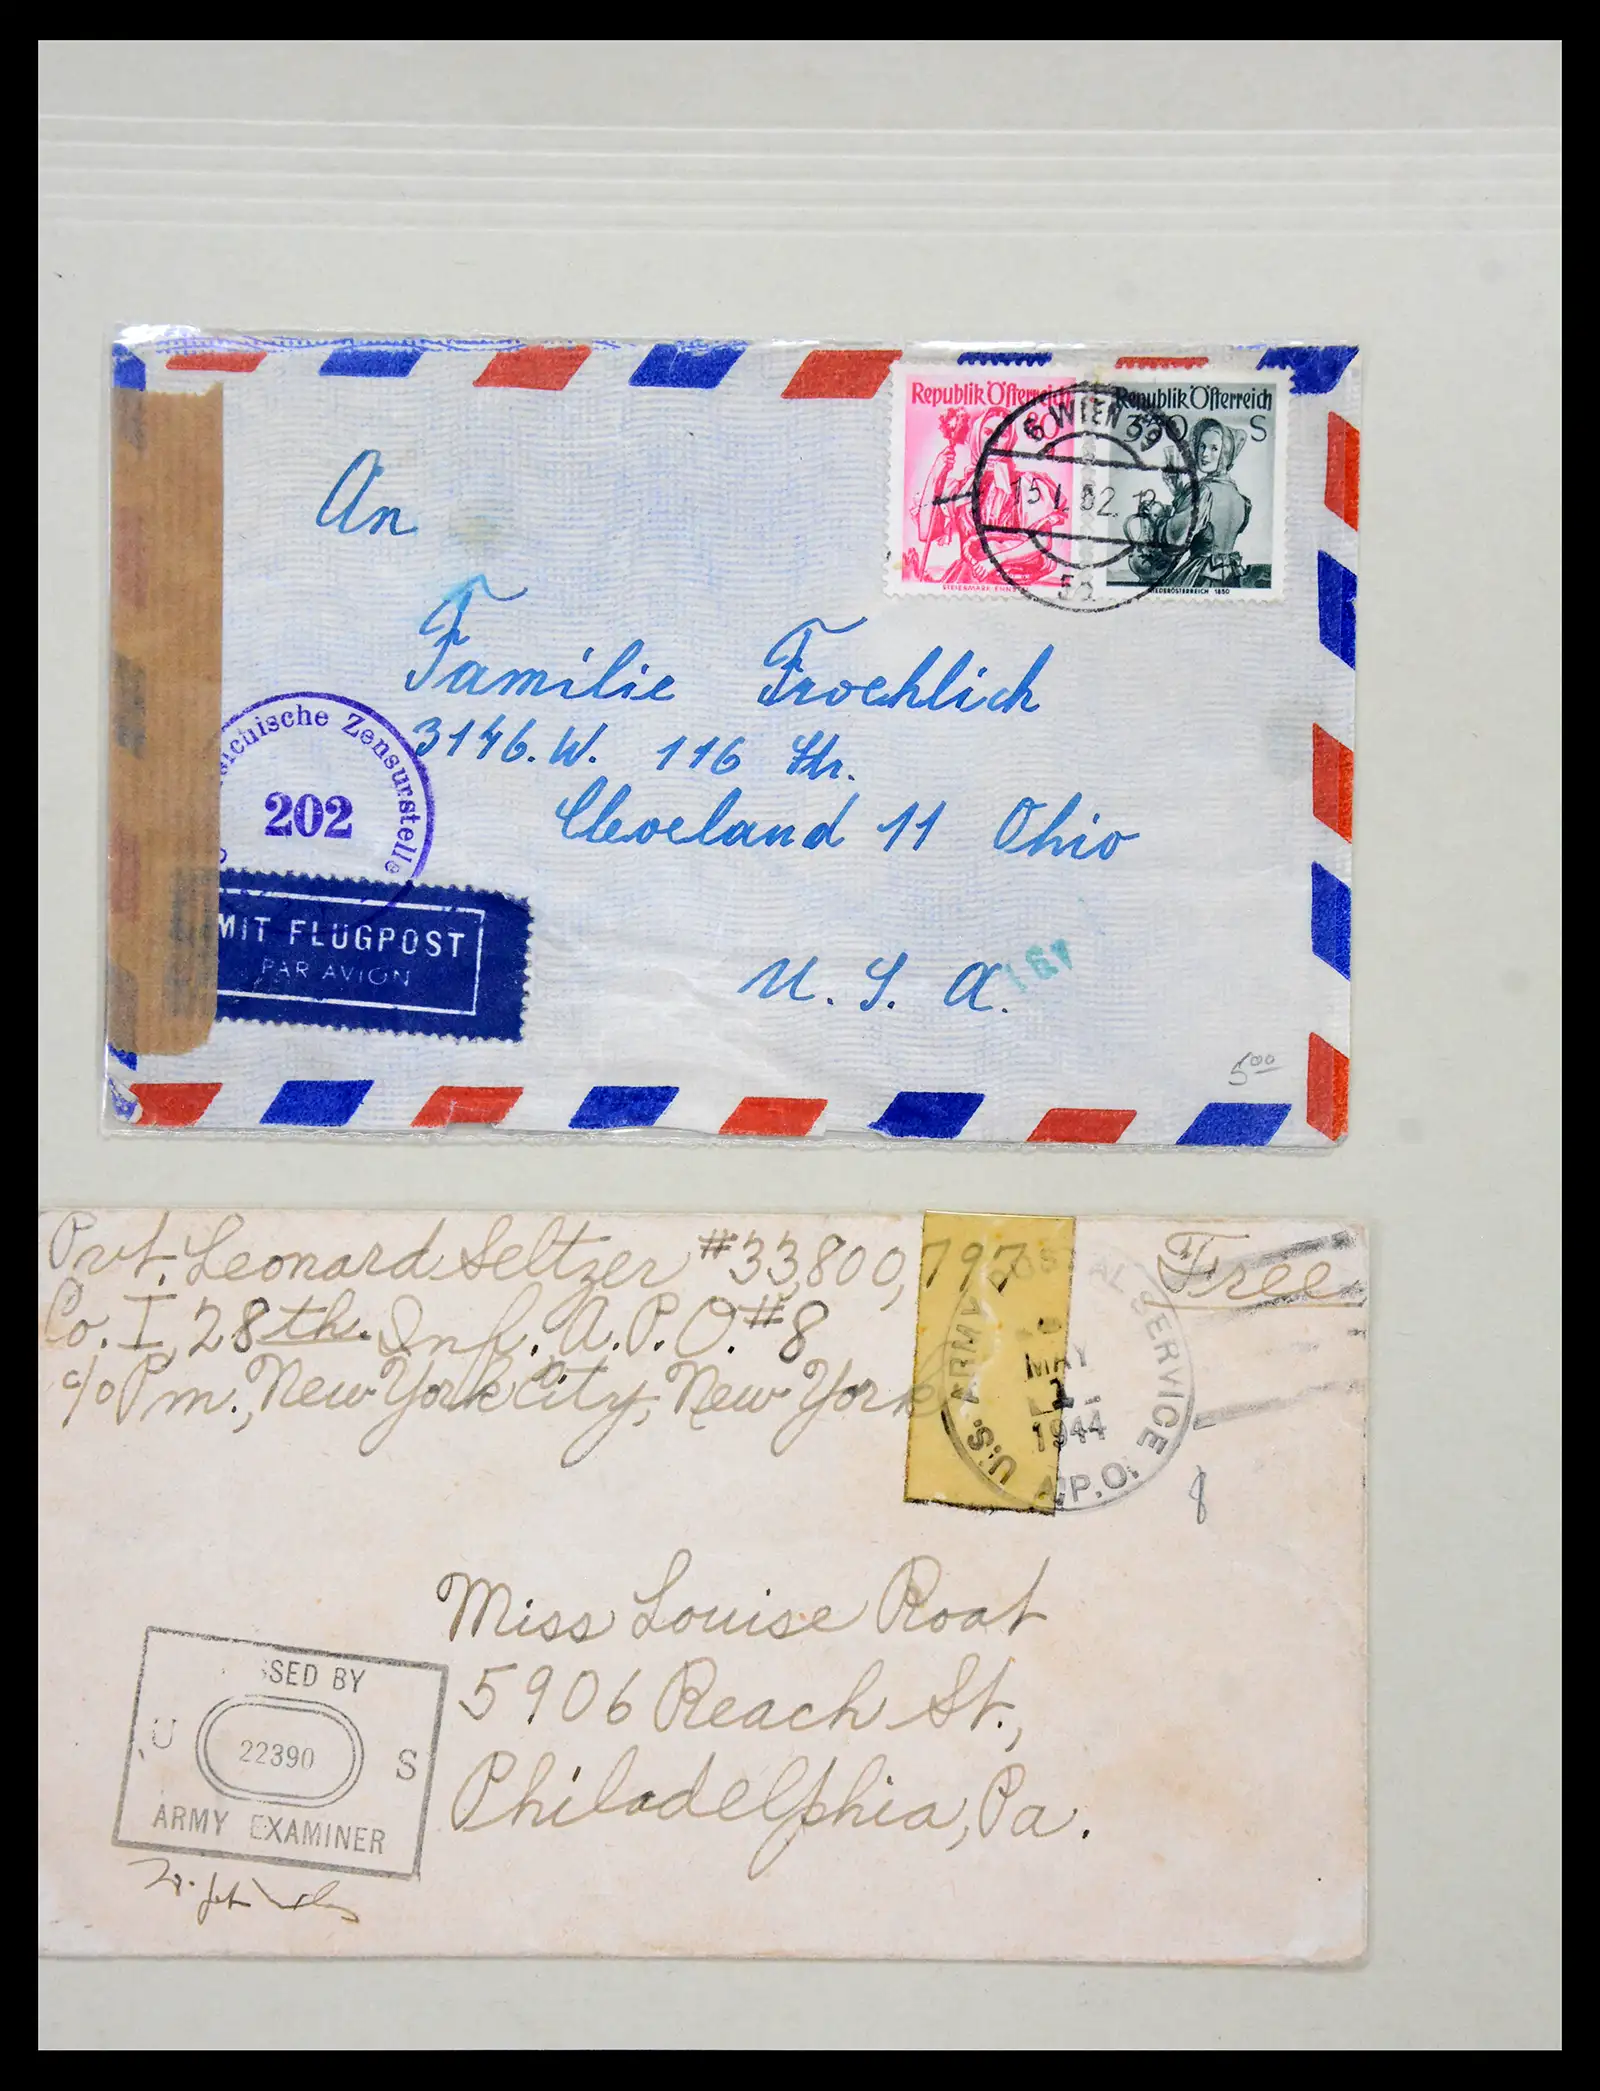 Republik Österreich
Republik Österreich
60
3.30 S
STEIERMARK ENNSTAL
NIEDERÖSTERREICH 1850
6 WIEN 39
15.I.52.12
An
Familie Froehlich
3146. W. 116 Str.
Cleveland 11 Ohio
U. S. A.
Zensurstelle
202
MIT FLUGPOST
PAR AVION
5 00
Pvt. Leonard Seltzer #33,800,797
Co. I, 28th. Inf. A.P.O. #8
c/o Pm., New York City, New York
Free
U.S. ARMY POSTAL SERVICE
MAY
1
1944
A.P.O.
8
Miss Louise Roat
5906 Reach St.,
Philadelphia, Pa.
SSED BY
U 22390 S
ARMY EXAMINER